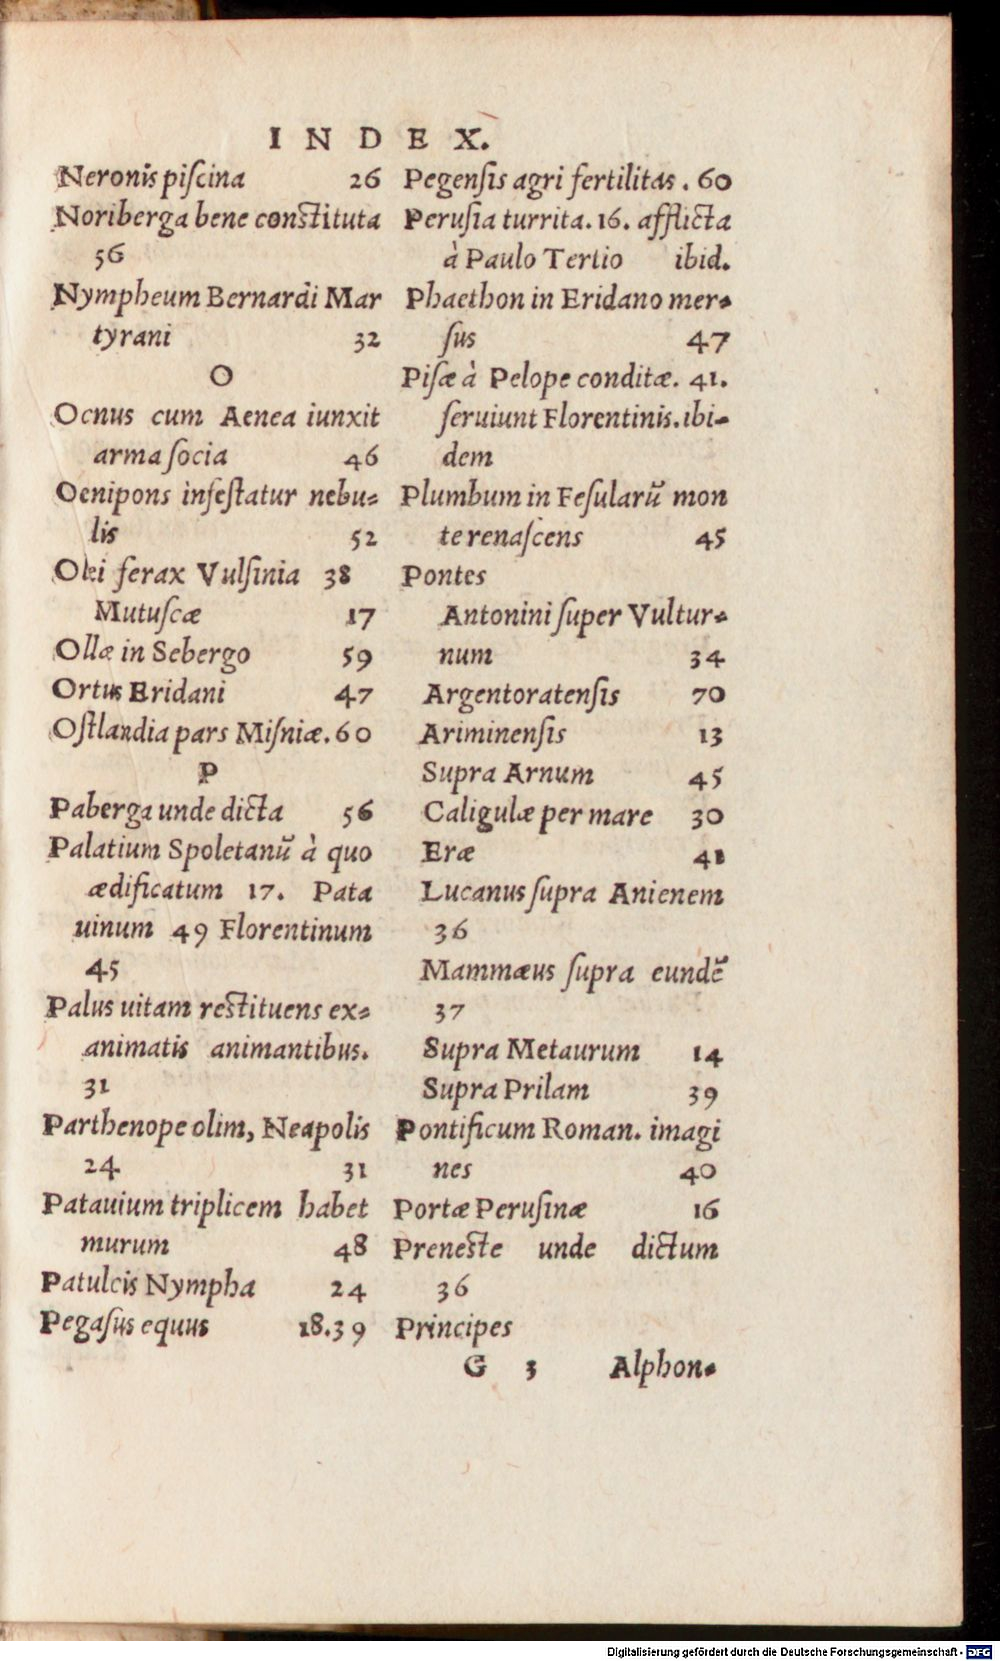 INDEX.
Neronis piſcina 26
Noriberga bene conſtituta
56
Nympheum Bernardi Mar
tyrani 32
O
Ocnus cum Aenea iunxit
arma ſocia 46
Oenipons infeſtatur nebu⸗
lis 52
Olei ferax Vulſinia 38
Mutuſcæ 17
Ollæ in Sebergo 59
Ortus Eridani 47
Oſtlandia pars Miſniæ. 60
P
Paberga unde dicta 56
Palatium Spoletanū à quo
ædificatum 17. Pata
uinum 49 Florentinum
45
Palus uitam reſtituens ex⸗
animatis animantibus.
31
Parthenope olim, Neapolis
24 31
Patauium triplicem habet
murum 48
Patulcis Nympha 24
Pegaſus equus 18.39
Pegenſis agri fertilitas. 60
Peruſia turrita. 16. afflicta
à Paulo Tertio ibid.
Phaethon in Eridano mer⸗
ſus 47
Piſæ à Pelope conditæ. 41.
ſeruiunt Florentinis. ibi⸗
dem
Plumbum in Feſularū mon
te renaſcens 45
Pontes
Antonini ſuper Vultur⸗
num 34
Argentoratenſis 70
Ariminenſis 13
Supra Arnum 45
Caligulæ per mare 30
Eræ 41
Lucanus ſupra Anienem
36
Mammæus ſupra eundē
37
Supra Metaurum 14
Supra Prilam 39
Pontificum Roman. imagi
nes 40
Portæ Peruſinæ 16
Preneſte unde dictum
36
Principes
G 3 Alphon⸗
Digitalisierung gefördert durch die Deutsche Forschungsgemeinschaft - DFG